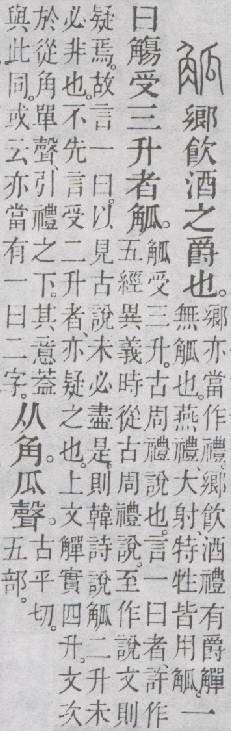 觚鄉飲酒之爵也。鄉亦當作禮。鄉飲酒禮有爵觶
無觚也。燕禮、大射、特牲皆用觚。一
曰觴受三升者觚。觚受三升。古周禮說也。言一曰者、許作
五經異義時從古周禮說。至作說文則
疑焉。故言一曰。以見古說未必盡是。則韓詩說觚二升未
必非也。不先言受二升者、亦疑之也。上文觶實四升。文次
於從角單聲、引禮之下。其意葢
與此同。或云亦當有一曰二字。从角。瓜聲。古乎切。
五部。